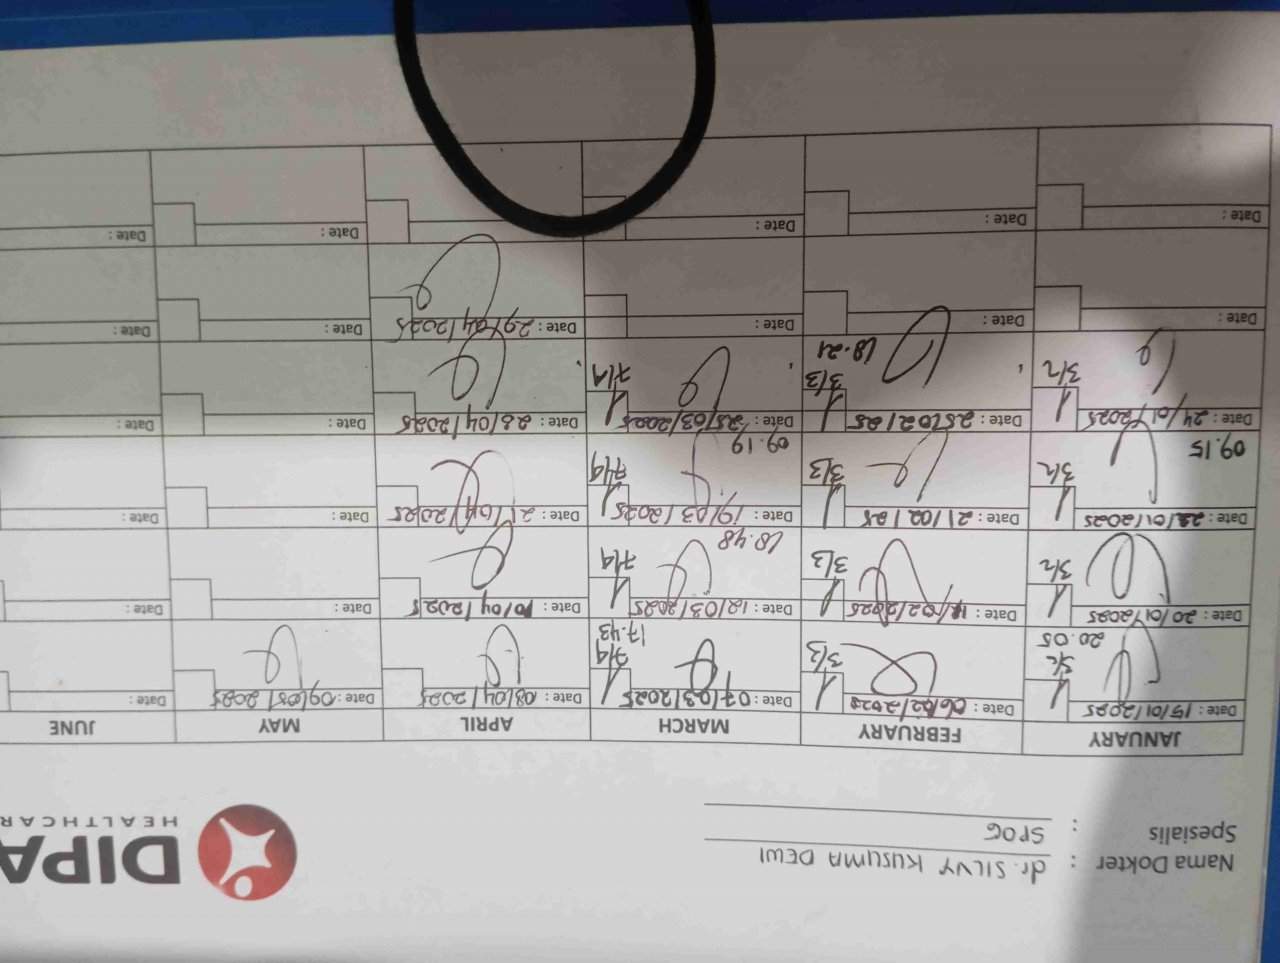 Nama Dokter : dr. SILVY KUSUMA DEWI
Spesialis : SPOG
DIPA
HEALTHCAR
JANUARY FEBRUARY MARCH APRIL MAY JUNE
Date: 15/01/2025 Date: 06/02/2025 Date: 07/03/2025 Date: 08/04/2025 Date: 09/05/2025 Date:
3/2 3/3 7/4
20.05 17.43
Date: 20/01/2025 Date: 12/03/2025 Date: 10/04/2025 Date: Date:
3/2 3/3 7/4
18.48
Date: 22/01/2025 Date: 21/02/25 Date: 19/03/2025 Date: 21/04/2025 Date: Date:
3/2 3/3 7/4
09.15 09.19
Date: 24/01/2025 Date: 25/02/25 Date: 25/03/2025 Date: Date: Date:
3/2 3/3 7/4
18.21
Date: Date: Date: Date: 29/04/2025 Date: Date:
Date: Date: Date: Date: Date: